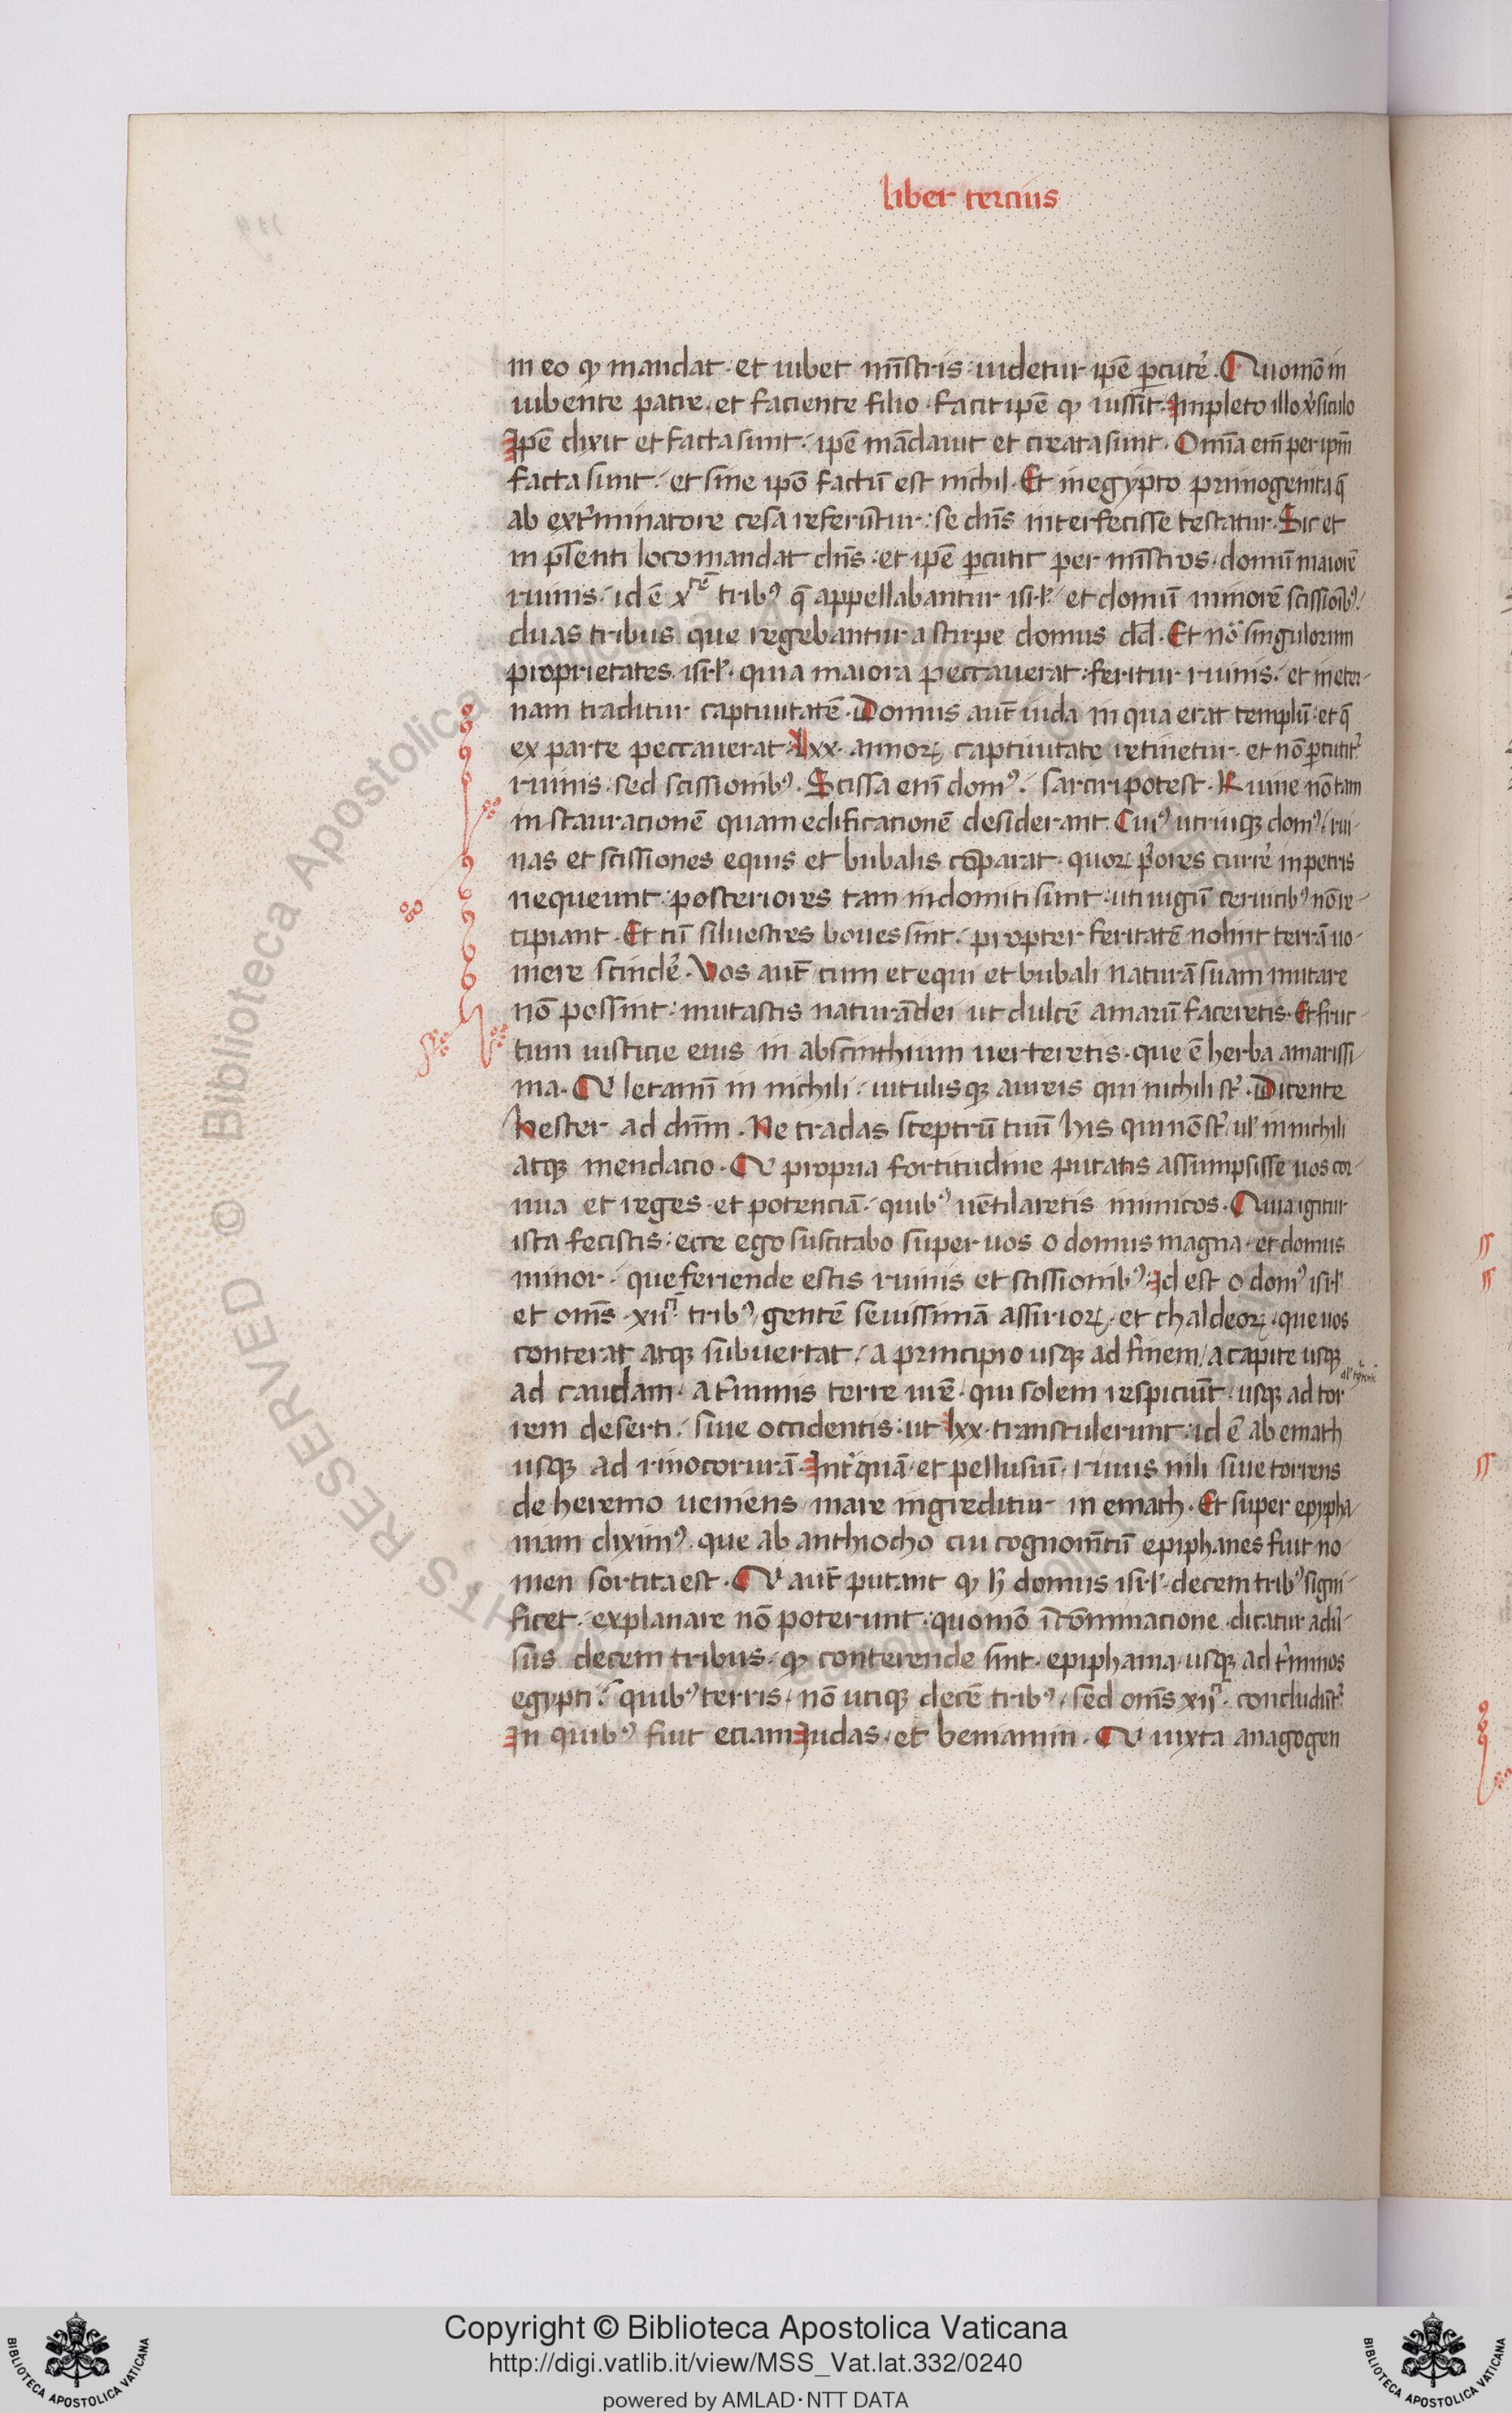 liber tercius
in eo qͥ mandat · et iubet mīstris · uidetur ip̄e ꝑcut̉e . Quomō in
iubente patre · et faciente filio · facit ip̄e qͥ iussit · Impleto illo v̉siculo
Ip̄e dixit et facta sunt · ip̄e mādauit et creata sunt · Om̄ia em̄ per ip̄m
facta sunt · et sine ip̄o factū est nichil · Et in egypto primogenita q̄
ab ext̉minatore cesa referūtur · se dn̄s interfecisse testatur · Sic et
in p̄senti loco mandat dn̄s · et ip̄e ꝑcutit per mīstros · domū maiorē
ruinis · id ē xcē tribꝰ q̄ appellabantur isrl̄ · et domū minorē scissioīb̉ꝰ ·
duas tribus que regebantur a stirpe domus dd̄ · Et nō singulorum
proprietates · isrl̄ · quia maiora peccauerat · feritur ruinis · et in eter-
nam traditur captiuitatē · Domus aut̄ iuda in qua erat templū · et q̄
ex parte peccauerat · Lxx · annoꝝ captiuitate retinetur · et nō ꝑcutit̉
ruinis · sed scissionibꝰ · Scissa enī domꝰ · sarciri potest · Ruine nō tam
instauracionē quam edificationē desiderant · Cuiꝰ utriusqꝫ domꝰ / rui-
nas et scissiones equis et bubalis cōparat · quoꝝ p̄ores curr̉e in petris
nequeunt · posteriores tam indomiti sunt · uti iugū ceruicibꝰ nō re-
cipiant · Et cū siluestres boues sint · propter feritatē nolint terrā uo-
mere scind̉e · Vos aut̄ cum et equi et bubali naturā suam mutare
nō possint · mutastis naturā dei ut dulcē amarū faceretis · Et fruc-
tum iusticie eius in abscinthium uerteretis · que ē herba amarissi-
ma · Ul letamī in nichili · uitulisqꝫ aureis qui nichili st̄ · Dicente
hester ad dn̄m · Ne tradas sceptrū tuū his qui nō st̄ / ul̄ in nichili
atqꝫ mendacio · Ul propria fortitudine putatis assumpsisse uos cor-
nua et reges · et potenciā · quibꝰ uētilaretis inimicos · Quia igitur
ista fecistis · ecce ego suscitabo super uos o domus magna · et domus
minor · que feriende estis ruinis et scissionibꝰ · Id est o domꝰ isrl̄
et om̄s · xii · tribꝰ / gentē seuissimā assirioꝝ · et chaldeoꝝ · que uos
conterat atqꝫ subuertat · a principio usqꝫ ad finem / a capite usqꝫ
ad caudam · a t̉minis terre ur̄e · qui solem respiciūt · usqꝫ ad tor
rem deserti · siue occidentis · ut lxx · transtulerunt · id ē ab emath
usqꝫ ad rinocorurā · Int̉ quā · et pellusiū · riuus nili siue torrens
de heremo ueniens / mare ingreditur in emath · Et super epypha-
niam diximꝰ · que ab anthiocho cui cognom̄tū epiphanes fuit no
men sortita est · Ul aut̄ putant qͥ h̄ domus isrl̄ · decem tribꝰ signi-
ficet · explanare nō poterunt · quomō ī cōminacione · dicatur adủ-
sus decem tribus · qͥ conterende sint · epiphania · usqꝫ ad t̉minos
egypti · quibꝰ terris / nō utiqꝫ decē tribꝰ / sed om̄s xii · concludūt̉
In quibꝰ fuit eciam Iudas · et beniamin · Ul iuxta anagogen
Copyright © Biblioteca Apostolica Vaticana
http://digi.vatlib.it/view/MSS_Vat.lat.332/0240
powered by AMLAD·NTT DATA
BIBLIOTECA APOSTOLICA VATICANA
BIBLIOTECA APOSTOLICA VATICANA